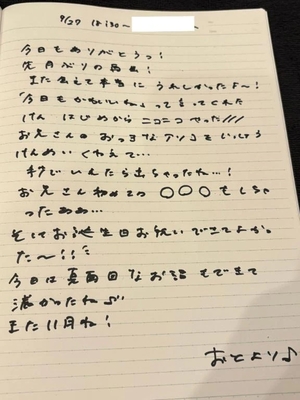 9/27 18:30〜
今日もありがとうっ!
先月ぶりの再会!
また会えて本当にうれしかったよ〜!
「今日もかわいいね」って言ってくれた
けん はじめからニコニコやった///
お兄さんのおっきなアソコをいっしょう
けんめいくわえて…
お兄さん初めての〇〇〇もしちゃ
ったぁぁ…
そしてお誕生日お祝いできてよかっ
た〜!!
今日は真面目なお話もできて
濃かったね♪
また11月ね!
おとより♪